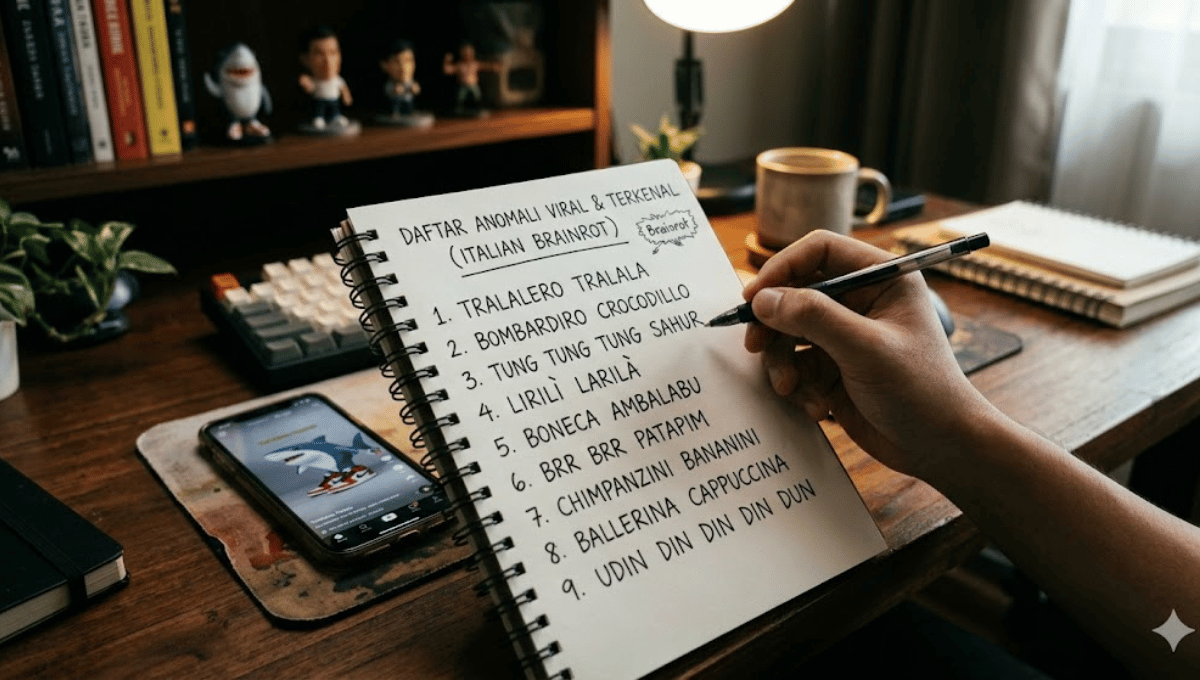 DAFTAR ANOMALI VIRAL & TERKENAL
(ITALIAN BRAINROT)
Brainrot
1. TRALALERO TRALALA
2. BOMBARDIRO CROCODILLO
3. TUNG TUNG TUNG SAHUR
4. LIRILÌ LARILÀ
5. BONECA AMBALABU
6. BRR BRR PATAPIM
7. CHIMPANZINI BANANINI
8. BALLERINA CAPPUCCINA
9. UDIN DIN DIN DIN DUN